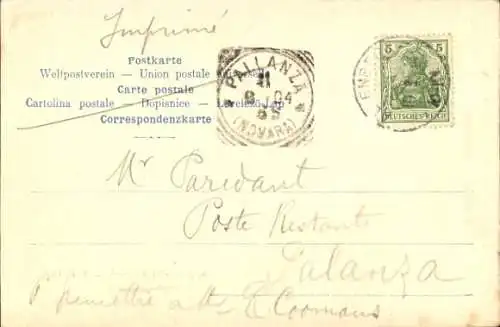 Imprimé
Postkarte
Weltpostverein – Union postale
Carte postale
Cartolina postale – Dopisnice – Levelező-Lap
Correspondenzkarte
PALLANZA
(NOVARA)
5 5
DEUTSCHES REICH
Mr Paridant
Poste Restante
Palanza
Coomans